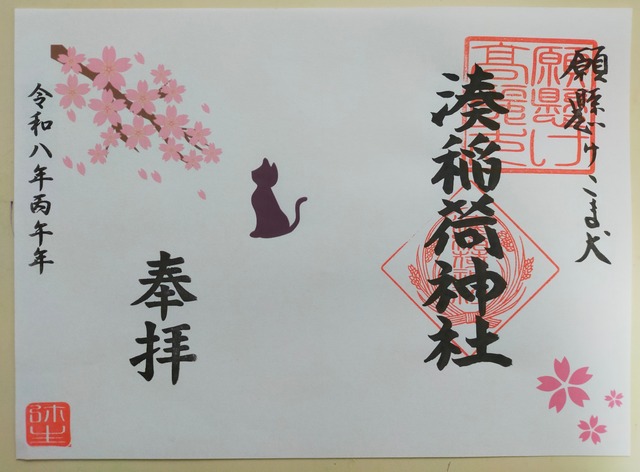 願懸けこま犬
湊稲荷神社
奉拝
令和八年丙午年
願懸け
弥生